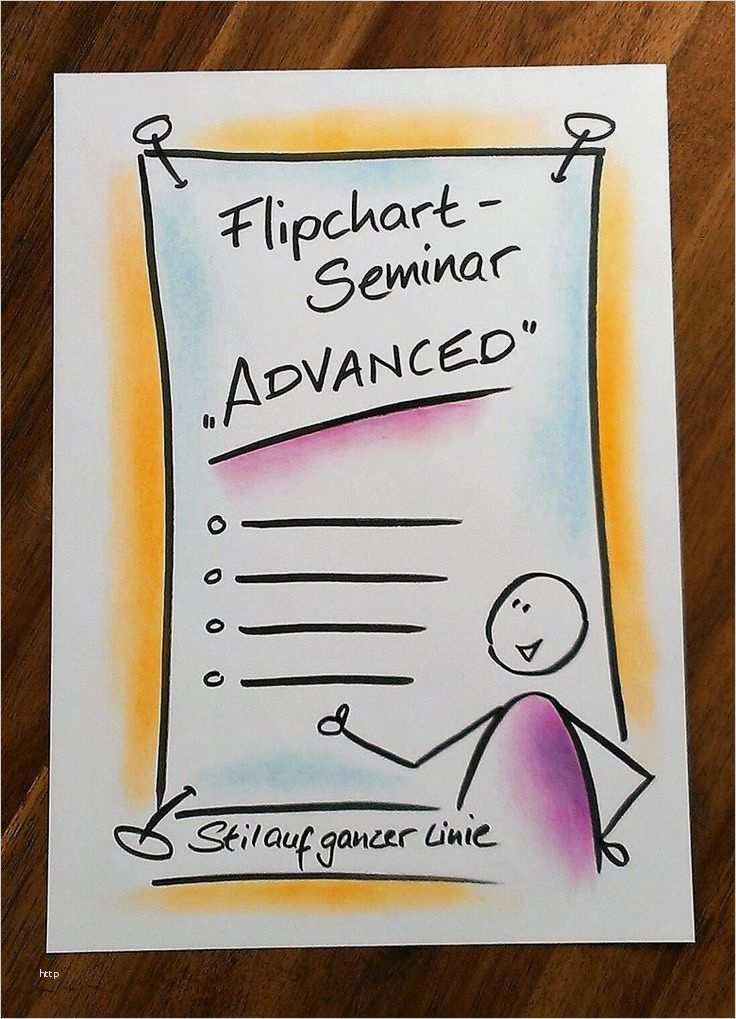 Flipchart-
Seminar
„ADVANCED"
Stil auf ganzer Linie
http